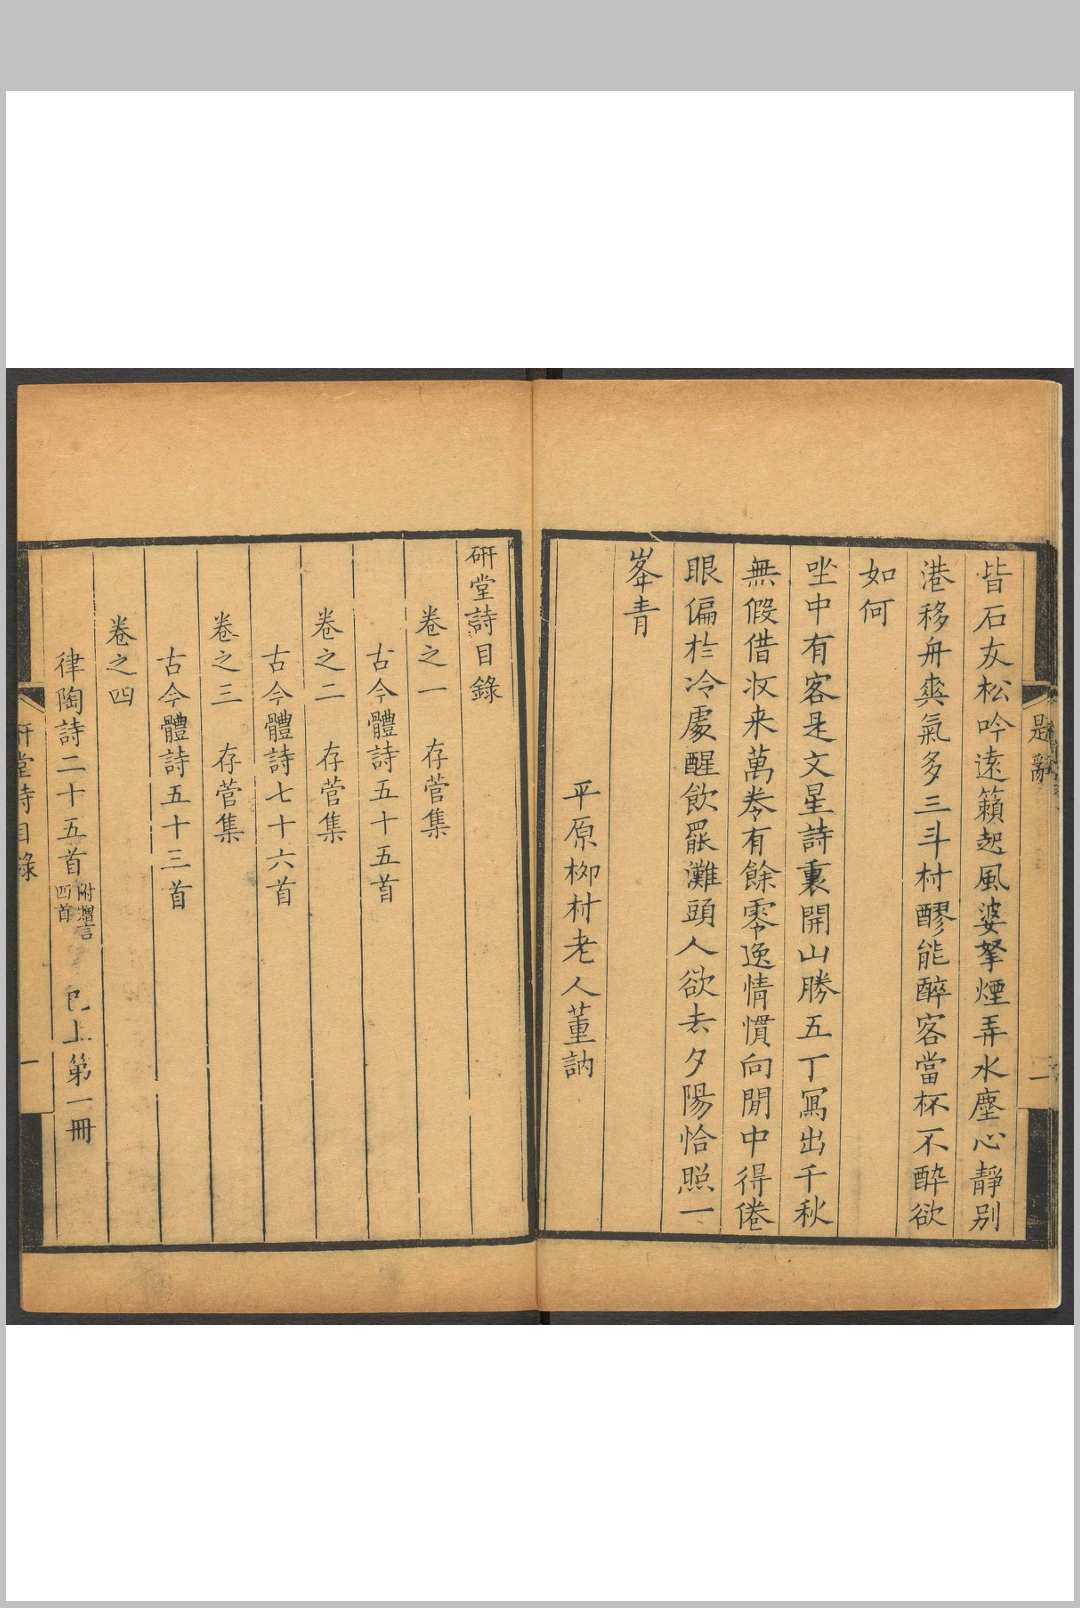 題辭
一
皆石友松吟遠籟起風婆拏煙弄水塵心靜别
港移舟爽氣多三斗村醪能醉客當杯不醉欲
如何
坐中有客是文星詩裏開山勝五丁寫出千秋
無假借收来萬劵有餘零逸情慣向閒中得倦
眼偏於冷處醒飲罷灘頭人欲去夕陽恰照一
峯青
平原柳村老人董訥
研堂詩目錄
卷之一 存菅集
古今體詩五十五首
卷之二 存菅集
古今體詩七十六首
卷之三 存菅集
古今體詩五十三首
卷之四
律陶詩二十五首 附贈言四首 已上第一冊
研堂詩目錄
一